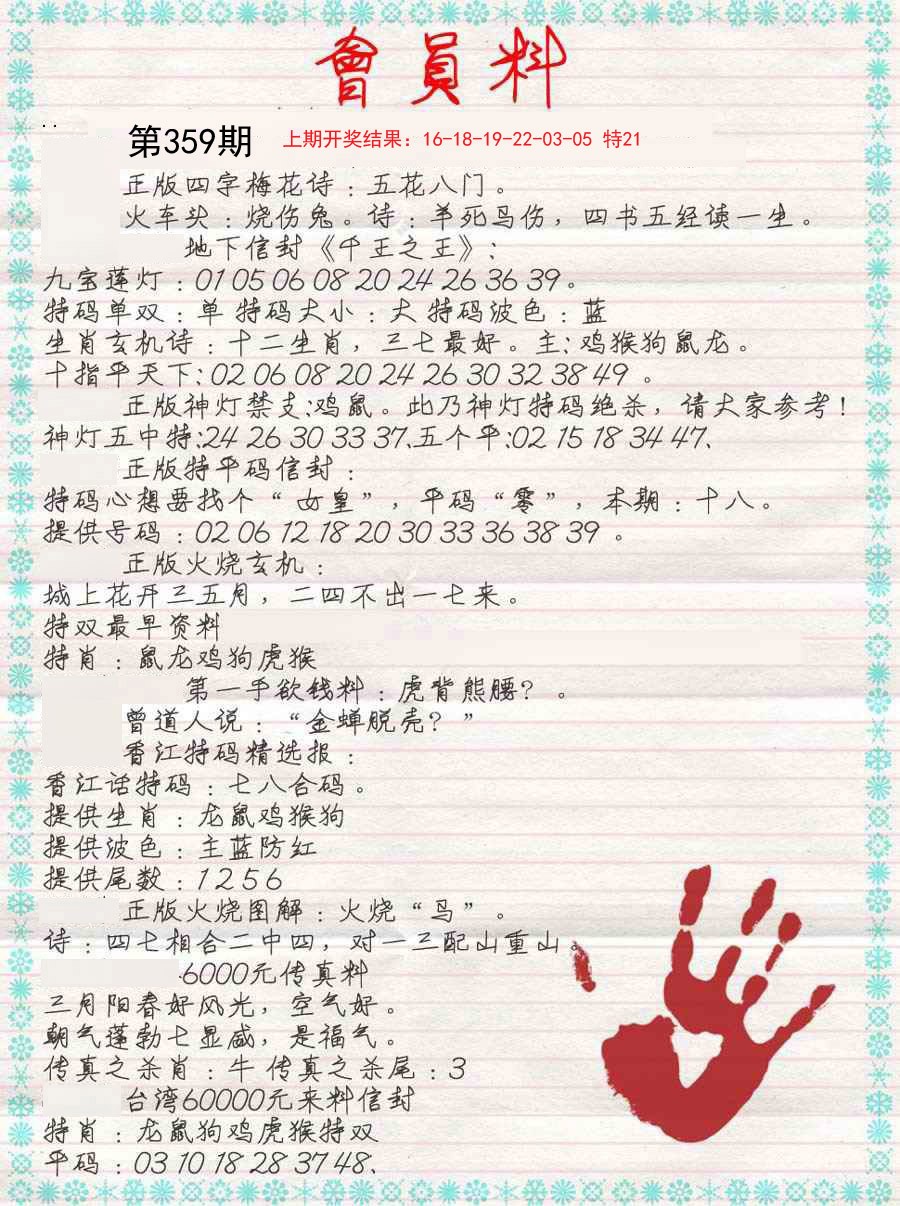 會員料
第359期 上期开奖结果：16-18-19-22-03-05 特21
正版四字梅花诗：五花八门。
火车头：烧伤兔。诗：羊死鸟伤，四书五经读一生。
地下信封《千王之王》：
九宝莲灯：01 05 06 08 20 24 26 36 39。
特码单双：单 特码大小：大 特码波色：蓝
生肖玄机诗：十二生肖，三七最好。主：鸡猴狗鼠龙。
十指平天下：02 06 08 20 24 26 30 32 38 49 。
正版神灯禁支：鸡鼠。此乃神灯特码绝杀，请大家参考！
神灯五中特：24 26 30 33 37.五个平：02 15 18 34 47.
正版特平码信封：
特码心想要找个“女皇”，平码“零”，本期：十八。
提供号码：02 06 12 18 20 30 33 36 38 39 。
正版火烧玄机：
城上花开三五月，二四不出一七来。
特双最早资料
特肖：鼠龙鸡狗虎猴
第一手欲钱料：虎背熊腰？。
曾道人说：“金蝉脱壳？”
香江特码精选报：
香江话特码：七八合码。
提供生肖：龙鼠鸡猴狗
提供波色：主蓝防红
提供尾数：1 2 5 6
正版火烧图解：火烧“鸟”。
诗：四七相合二中四，对一三配山重山。
6000元传真料
三月阳春好风光，空气好。
朝气蓬勃七显威，是福气。
传真之杀肖：牛 传真之杀尾：3
台湾60000元来料信封
特肖：龙鼠狗鸡虎猴特双
平码：03 10 18 28 37 48.